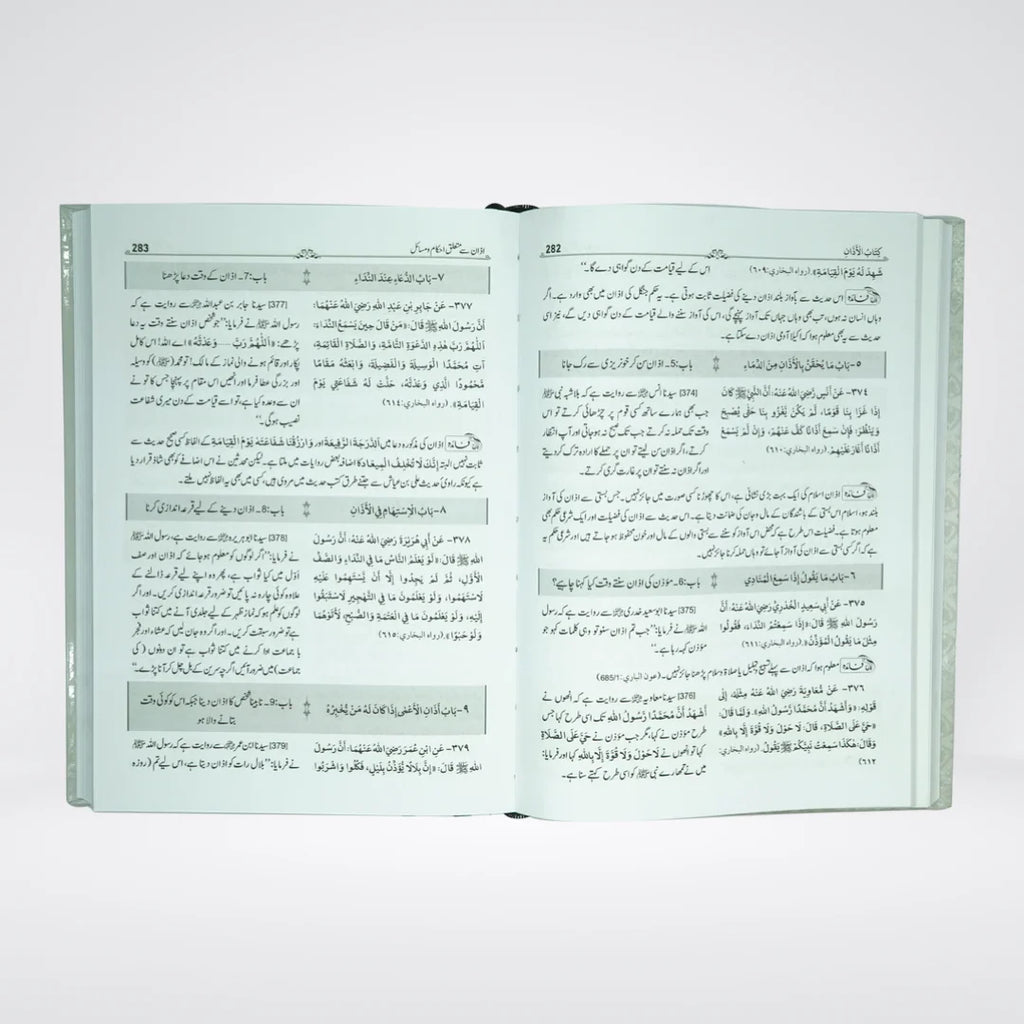 282 كِتَابُ الْأَذَانِ
شَهِدَ لَهُ يَوْمَ الْقِيَامَةِ». (رواه البخاري: ٦٠٩)
اس کے لیے قیامت کے دن گواہی دے گا۔‘‘
اس حدیث سے بآواز بلند اذان دینے کی فضیلت ثابت ہوتی ہے۔ یہ حکم جنگل کی اذان میں بھی وارد ہے۔ اگر
وہاں انسان نہ ہوں، تب بھی وہاں جہاں تک آواز پہنچے گی، اس کی آواز سننے والے قیامت کے دن گواہی دیں گے، نیز اسی
حدیث سے یہ بھی معلوم ہوا کہ اکیلا آدمی اذان دے سکتا ہے۔
٥- بَابُ مَا يُحْقَنُ بِالْأَذَانِ مِنَ الدِّمَاءِ
باب:5۔ اذان سن کر خونریزی سے رک جانا
٣٧٤- عَنْ أَنَسٍ رَضِيَ اللهُ عَنْهُ: أَنَّ النَّبِيَّ ﷺ كَانَ
إِذَا غَزَا بِنَا قَوْمًا، لَمْ يَكُنْ يَغْزُو بِنَا حَتَّى يُصْبِحَ
وَيَنْظُرَ: فَإِنْ سَمِعَ أَذَانًا كَفَّ عَنْهُمْ، وَإِنْ لَمْ يَسْمَعْ
أَذَانًا أَغَارَ عَلَيْهِمْ. (رواه البخاري: ٦١٠)
[374] سیدنا انس ؓ سے روایت ہے کہ بلاشبہ نبی ﷺ
جب بھی ہمارے ساتھ کسی قوم پر چڑھائی کرتے تو اس
وقت تک حملہ نہ کرتے جب تک صبح نہ ہو جاتی اور آپ انتظار
کرتے، اگر اذان سن لیتے تو ان پر حملے کا ارادہ ترک کر دیتے
اور اگر اذان نہ سنتے تو ان پر غارت گری کرتے۔
اذان اسلام کی ایک بہت بڑی نشانی ہے، اس کا چھوڑنا کسی صورت میں جائز نہیں۔ جس بستی سے اذان کی آواز
بلند ہو، اسلام اس بستی کے باشندگان کے مال و جان کی ضمانت دیتا ہے۔ اس حدیث سے اذان کی فضیلت اور ایک شرعی حکم بھی
معلوم ہوتا ہے۔ فضیلت اس طرح ہے کہ محض اس آواز کو سننے سے بستی والوں کے مال اور خون محفوظ ہو جاتے ہیں اور شرعی حکم یہ
ہے کہ اگر کسی بستی سے اذان کی آواز آ جائے تو وہاں حملہ کرنا جائز نہیں۔
٦- بَابُ مَا يَقُولُ إِذَا سَمِعَ الْمُنَادِي
باب:6۔ مؤذن کی اذان سنتے وقت کیا کہنا چاہیے؟
٣٧٥- عَنْ أَبِي سَعِيدٍ الْخُدْرِيِّ رَضِيَ اللهُ عَنْهُ: أَنَّ
رَسُولَ اللهِ ﷺ قَالَ: «إِذَا سَمِعْتُمُ النِّدَاءَ، فَقُولُوا
مِثْلَ مَا يَقُولُ الْمُؤَذِّنُ». (رواه البخاري: ٦١١)
[375] سیدنا ابو سعید خدری ؓ سے روایت ہے کہ رسول
اللہ ﷺ نے فرمایا: ’’جب تم اذان سنو تو وہی کلمات کہو جو
مؤذن کہہ رہا ہے۔‘‘
معلوم ہوا کہ اذان سے پہلے تسبیح و تہلیل یا صلاۃ و سلام پڑھنا جائز نہیں۔ (عون الباري: 685/1)
٣٧٦- عَنْ مُعَاوِيَةَ رَضِيَ اللهُ عَنْهُ مِثْلُهُ، إِلَى
قَوْلِهِ: «وَأَشْهَدُ أَنَّ مُحَمَّدًا رَسُولُ اللهِ». وَلَمَّا قَالَ:
«حَيَّ عَلَى الصَّلَاةِ»، قَالَ: لَا حَوْلَ وَلَا قُوَّةَ إِلَّا بِاللهِ»
وَقَالَ: هَكَذَا سَمِعْتُ نَبِيَّكُمْ ﷺ يَقُولُ. (رواه البخاري:
٦١٢)
[376] سیدنا معاویہ ؓ سے روایت ہے کہ انھوں نے
أَشْهَدُ أَنَّ مُحَمَّدًا رَّسُولُ اللهِ تک اسی طرح کہا جس
طرح مؤذن نے کہا، مگر جب مؤذن نے حَيَّ عَلَى الصَّلَاةِ
کہا تو انھوں نے لَا حَوْلَ وَلَا قُوَّةَ إِلَّا بِاللهِ کہا اور فرمایا:
میں نے تمھارے نبی ﷺ کو اسی طرح کہتے سنا ہے۔
اذان سے متعلق احکام و مسائل 283
٧- بَابُ الدُّعَاءِ عِنْدَ النِّدَاءِ
باب:7۔ اذان کے وقت دعا پڑھنا
٣٧٧- عَنْ جَابِرِ بْنِ عَبْدِ اللهِ رَضِيَ اللهُ عَنْهُمَا:
أَنَّ رَسُولَ اللهِ ﷺ قَالَ: «مَنْ قَالَ حِينَ يَسْمَعُ النِّدَاءَ:
اَللّٰهُمَّ رَبَّ هٰذِهِ الدَّعْوَةِ التَّامَّةِ، وَالصَّلَاةِ الْقَائِمَةِ،
آتِ مُحَمَّدًا الْوَسِيلَةَ وَالْفَضِيلَةَ، وَابْعَثْهُ مَقَامًا
مَحْمُودًا الَّذِي وَعَدْتَهُ، حَلَّتْ لَهُ شَفَاعَتِي يَوْمَ
الْقِيَامَةِ». (رواه البخاري: ٦١٤)
[377] سیدنا جابر بن عبداللہ ؓ سے روایت ہے کہ
رسول اللہ ﷺ نے فرمایا: ’’جو شخص اذان سنتے وقت یہ دعا
پڑھے: «اَللّٰهُمَّ رَبَّ ..... وَعَدْتَهُ» اے اللہ! اس کامل
پکار اور قائم ہونے والی نماز کے مالک! تو محمد (ﷺ) کو وسیلہ
اور بزرگی عطا فرما اور انھیں اس مقام پر پہنچا جس کا تو نے
ان سے وعدہ کیا ہے، تو اسے قیامت کے دن میری شفاعت
نصیب ہو گی۔‘‘
اذان کی مذکورہ دعا میں اَلدَّرَجَةَ الرَّفِيعَةَ اور وَارْزُقْنَا شَفَاعَتَهُ يَوْمَ الْقِيَامَةِ کے الفاظ کسی صحیح حدیث سے
ثابت نہیں البتہ إِنَّكَ لَا تُخْلِفُ الْمِيعَادَ کا اضافہ بعض روایات میں ملتا ہے۔ لیکن محدثین نے اس اضافے کو بھی شاذ قرار دیا
ہے کیونکہ راوی حدیث علی بن عیاش سے جتنے طرق کتب حدیث میں مروی ہیں، کسی میں بھی یہ الفاظ نہیں ملتے۔
٨- بَابُ الْاِسْتِهَامِ فِي الْأَذَانِ
باب:8۔ اذان دینے کے لیے قرعہ اندازی کرنا
٣٧٨- عَنْ أَبِي هُرَيْرَةَ رَضِيَ اللهُ عَنْهُ: أَنَّ رَسُولَ
اللهِ ﷺ قَالَ: «لَوْ يَعْلَمُ النَّاسُ مَا فِي النِّدَاءِ وَالصَّفِّ
الْأَوَّلِ، ثُمَّ لَمْ يَجِدُوا إِلَّا أَنْ يَسْتَهِمُوا عَلَيْهِ
لَاسْتَهَمُوا، وَلَوْ يَعْلَمُونَ مَا فِي التَّهْجِيرِ لَاسْتَبَقُوا
إِلَيْهِ، وَلَوْ يَعْلَمُونَ مَا فِي الْعَتَمَةِ وَالصُّبْحِ، لَأَتَوْهُمَا
وَلَوْ حَبْوًا». (رواه البخاري: ٦١٥)
[378] سیدنا ابو ہریرہ ؓ سے روایت ہے، رسول اللہ ﷺ
نے فرمایا: ’’اگر لوگوں کو معلوم ہو جائے کہ اذان اور صف
اوّل میں کیا ثواب ہے، پھر وہ اپنے لیے قرعہ ڈالنے کے
علاوہ کوئی چارہ نہ پائیں تو ضرور قرعہ اندازی کریں۔ اور اگر
لوگوں کو علم ہو کہ نماز ظہر کے لیے جلدی آنے میں کتنا ثواب
ہے تو ضرور سبقت کریں۔ اور اگر وہ جان لیں کہ عشاء اور فجر
با جماعت ادا کرنے میں کتنا ثواب ہے تو ان دونوں (کی
جماعت) میں ضرور آئیں اگرچہ سرین کے بل چل کر آنا پڑے۔‘‘
٩- بَابُ أَذَانِ الْأَعْمَى إِذَا كَانَ لَهُ مَنْ يُّخْبِرُهُ
باب:9۔ نابینا شخص کا اذان دینا جبکہ اس کو کوئی وقت
بتانے والا ہو
٣٧٩- عَنِ ابْنِ عُمَرَ رَضِيَ اللهُ عَنْهُمَا: أَنَّ رَسُولَ
اللهِ ﷺ قَالَ: «إِنَّ بِلَالًا يُؤَذِّنُ بِلَيْلٍ، فَكُلُوا وَاشْرَبُوا
[379] سیدنا ابن عمر ؓ سے روایت ہے کہ رسول اللہ ﷺ
نے فرمایا: ’’بلال رات کو اذان دیتا ہے، اس لیے تم (روزہ